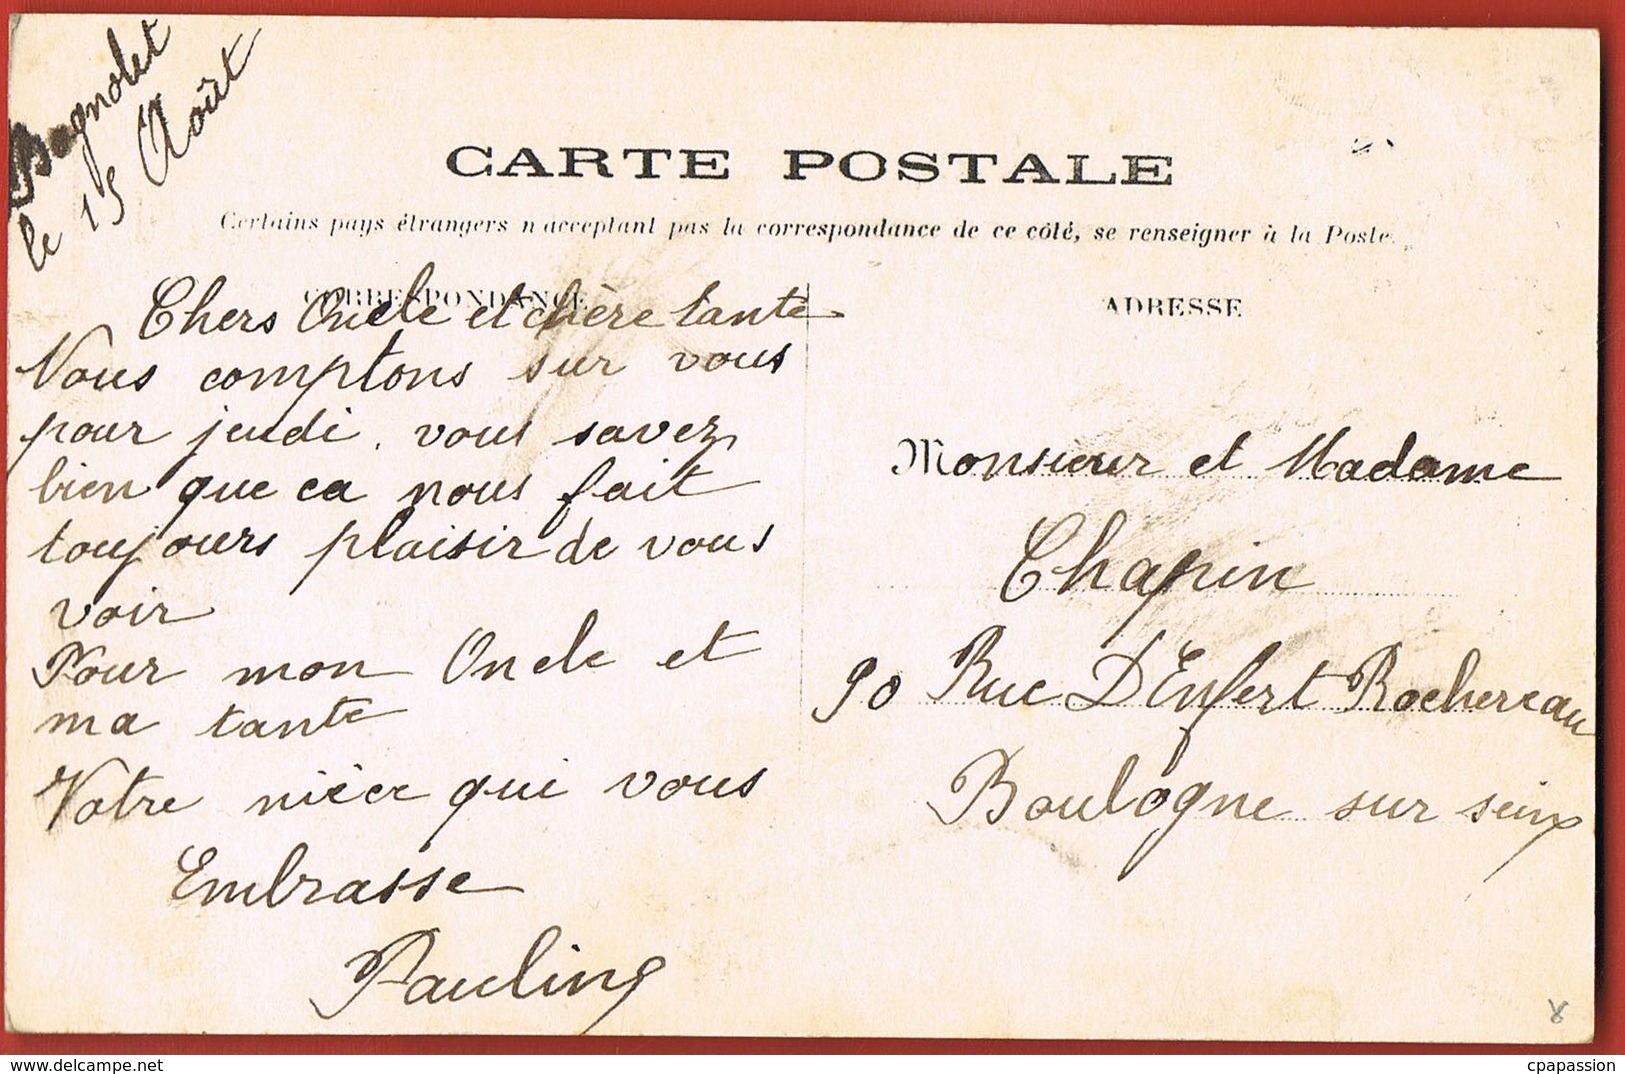 Bagnolet
le 15 Août
CARTE POSTALE
Certains pays étrangers n'acceptant pas la correspondance de ce côté, se renseigner à la Poste.
CORRESPONDANCE
ADRESSE
Chers Oncle et chère tante
Nous comptons sur vous
pour jeudi. vous savez
bien que ca nous fait
toujours plaisir de vous
voir
Pour mon Oncle et
ma tante
Votre nièce qui vous
Embrasse
Pauline
Monsieur et Madame
Chapin
90 Rue D'Enfert Rochereau
Boulogne sur seine
cpapassion